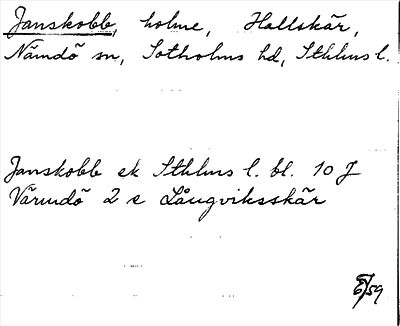 Janskobb, holme, Hallskär,
Nämdö sn, Sotholms hd, Sthlms l.
Janskobb ek Sthlms l. bl. 10 J
Värmdö 2 e Långviksskär